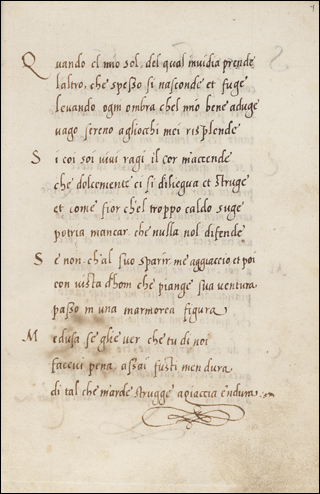 Quando el mio sol, del qual inuidia prende
laltro, che spesso si nasconde et fuge
leuando ogni ombra chel mio bene aduge
uago sereno agliochi mei risplende
Si coi soi uiui ragi il cor m'accende
che dolcemente ei si dilegua et struge
et come fior ch'el troppo caldo suge
potria mancar, che nulla nol difende
Se non ch'al suo sparir me aggiaccio et poi
con uista d'hom che piange sua uentura
passo in una marmorea figura
Medusa se glie uer che tu di noi
faceui petra, assai fusti men dura
di tal che m'arde strugge aghiaccia e'ndura